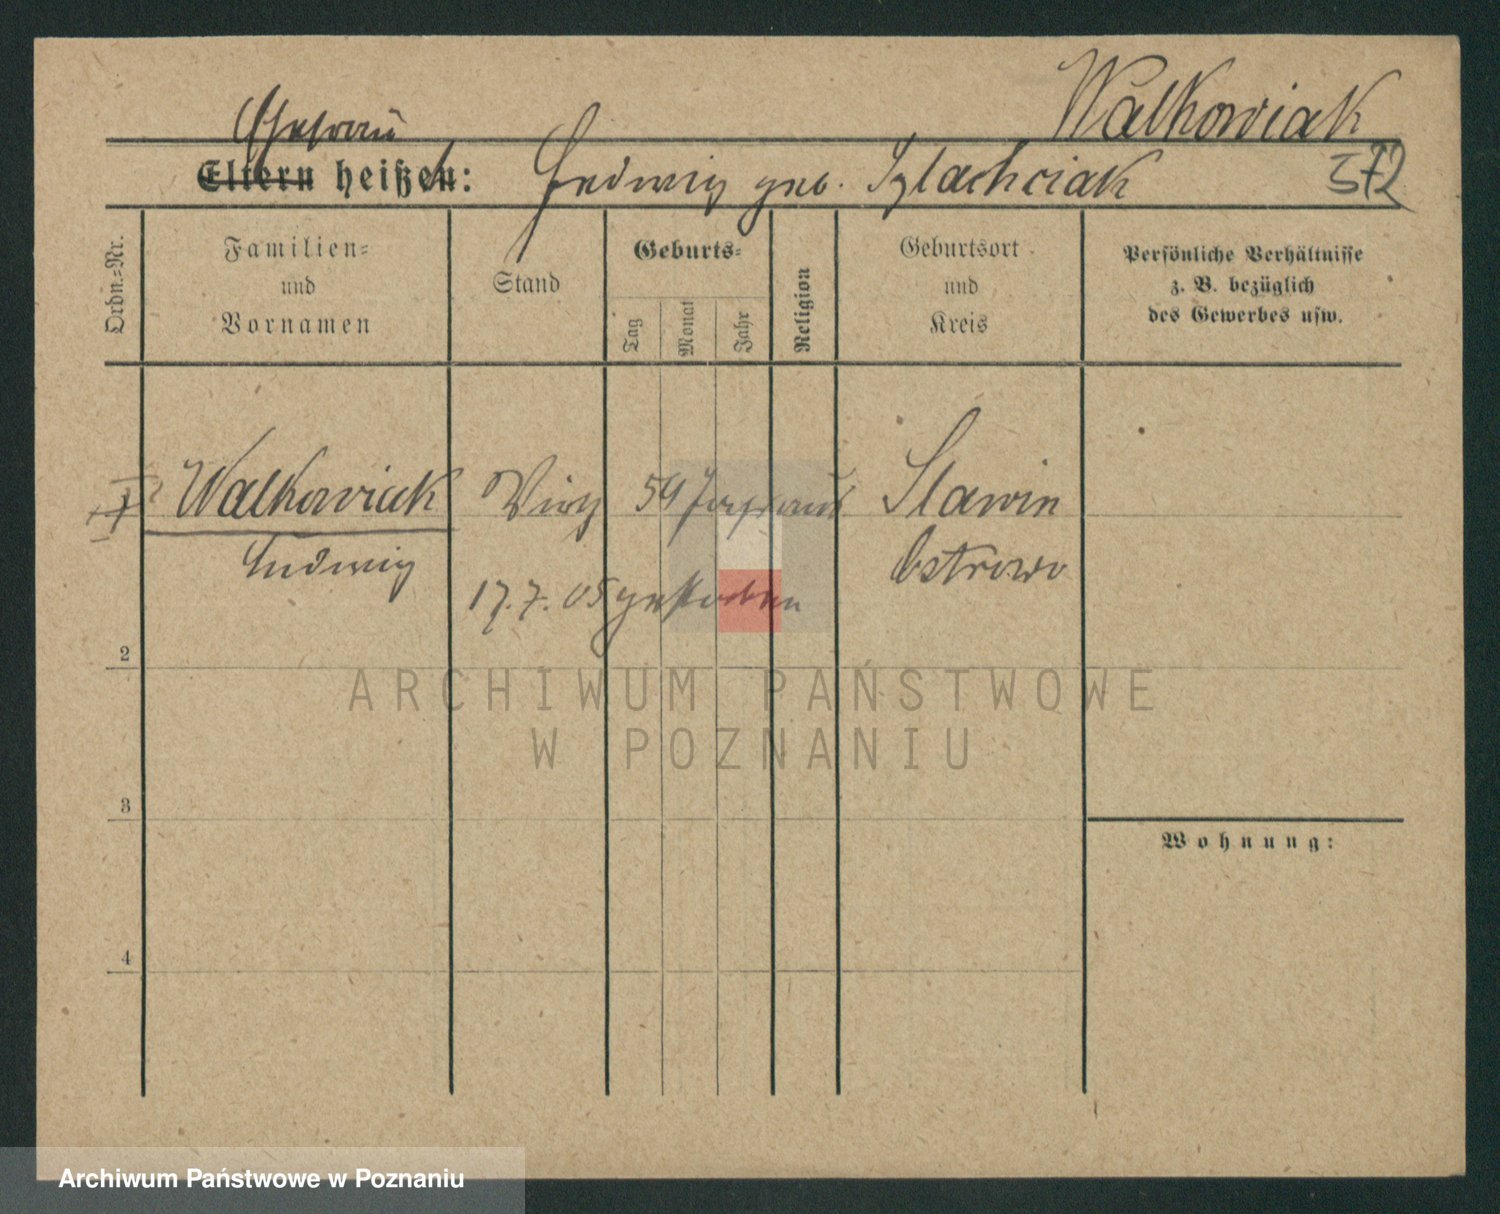 Walkowiak
Ehefrau
Eltern heißen: Hedwig geb. Szlachciak 372
Ordn.-Nr.
Familien-
und
Vornamen
Stand
Geburts-
Tag
Monat
Jahr
Religion
Geburtsort
und
Kreis
Persönliche Verhältnisse
z. B. bezüglich
des Gewerbes usw.
Walkowiak 59 Slawin
Ludwig Ostrowo
17.7.05 gestorben
2
ARCHIWUM PAŃSTWOWE
W POZNANIU
3
Wohnung:
4
Archiwum Państwowe w Poznaniu